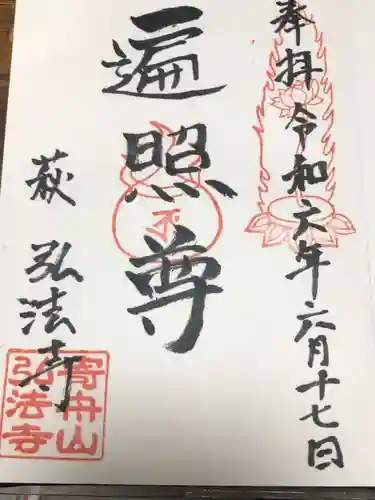 奉拝 令和六年六月十七日
遍照尊
萩 弘法寺
寄舟山
弘法寺